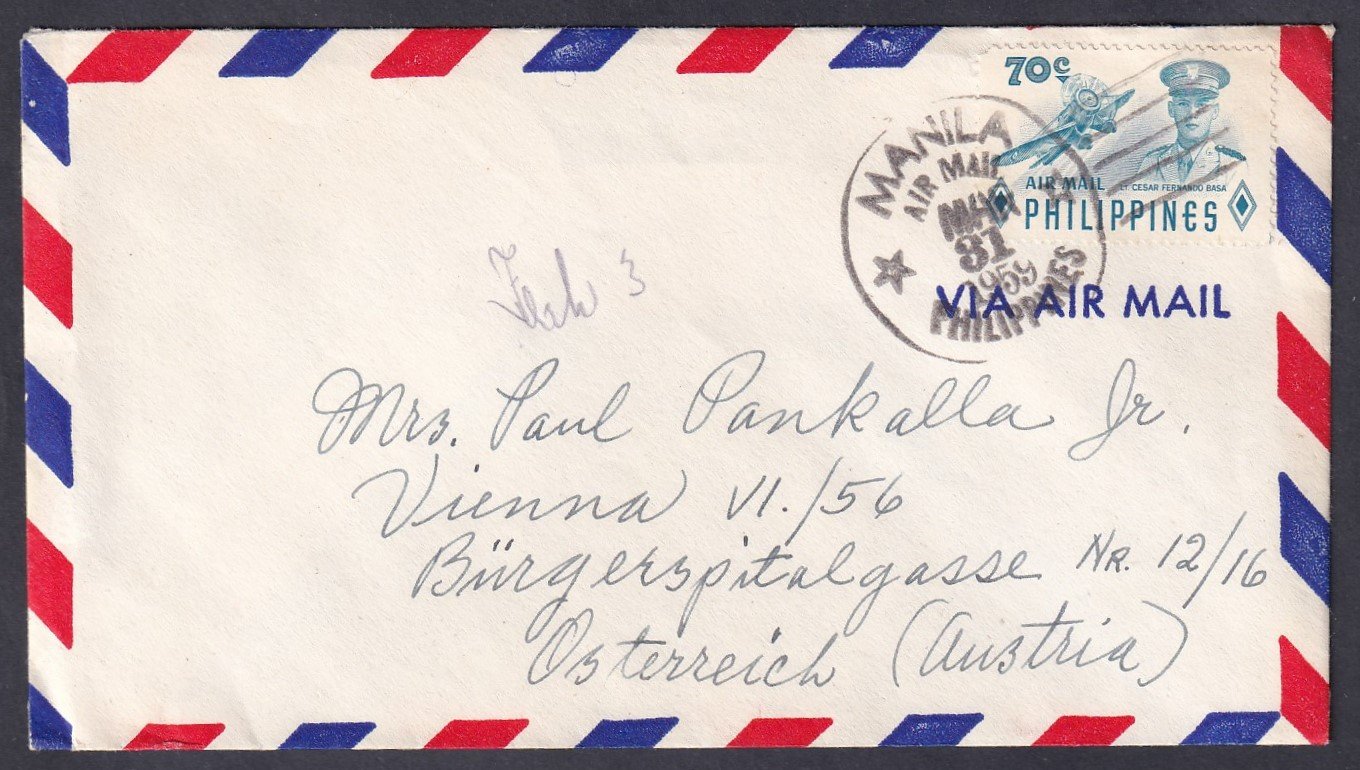 70c
AIR MAIL LT CESAR FERNANDO BASA
PHILIPPINES
MANILA
AIR MAIL
31
1959
PHILIPPINES
VIA AIR MAIL
3
Mrs. Paul Pankalla Jr.
Vienna VI./56
Bürgerspitalgasse Nr. 12/16
Österreich (Austria)